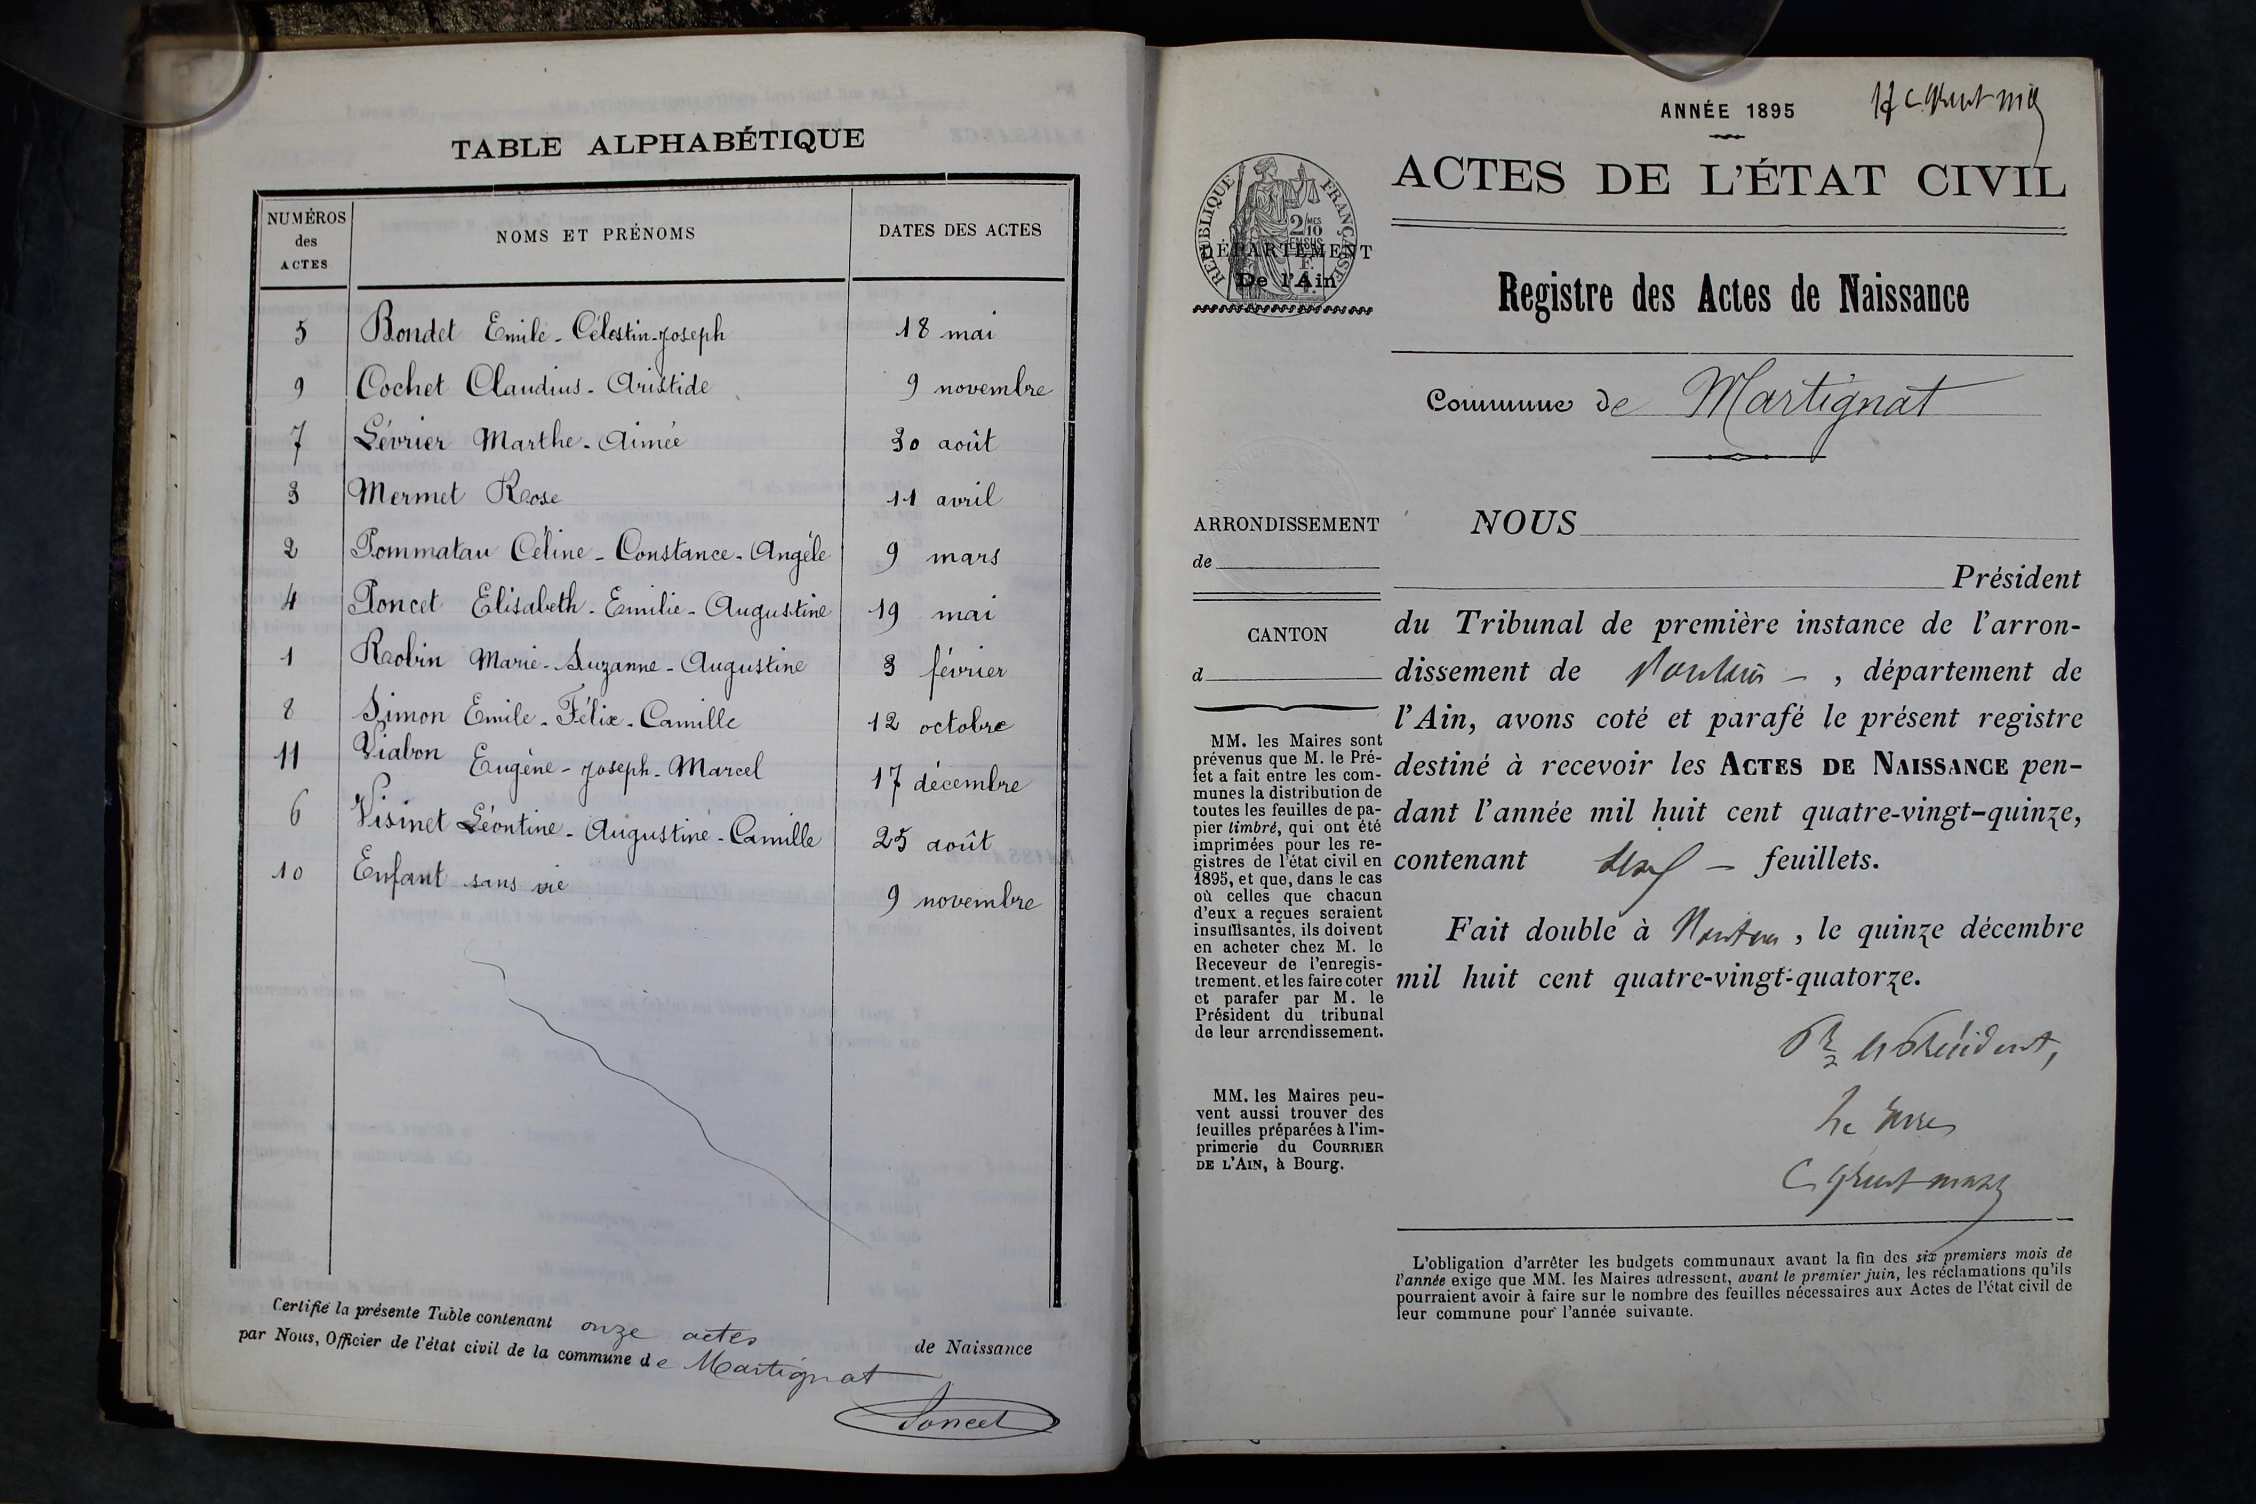 TABLE ALPHABÉTIQUE
NUMÉROS des ACTES | NOMS ET PRÉNOMS | DATES DES ACTES
5 Bondet Emile - Célestin - Joseph 18 mai
9 Cochet Claudius - Aristide 9 novembre
7 Lévrier Marthe - Aimée 30 août
3 Mermet Rose 11 avril
2 Pommatau Céline - Constance - Angèle 9 mars
4 Poncet Elisabeth - Emilie - Augustine 19 mai
1 Robin Marie - Suzanne - Augustine 3 février
8 Simon Emile - Félix - Camille 12 octobre
11 Viabon Eugène - Joseph - Marcel 17 décembre
6 Visinet Léontine - Augustine - Camille 25 août
10 Enfant sans vie 9 novembre
Certifié la présente Table contenant onze actes de Naissance
par Nous, Officier de l'état civil de la commune de Martignat
Poncet
ANNÉE 1895
ACTES DE L'ÉTAT CIVIL
RÉPUBLIQUE FRANÇAISE
2/10 MES
EN SUS
DÉPARTEMENT
De l'Ain
Registre des Actes de Naissance
Commune de Martignat
ARRONDISSEMENT
de
CANTON
d
MM. les Maires sont
prévenus que M. le Pré-
fet a fait entre les com-
munes la distribution de
toutes les feuilles de pa-
pier timbré, qui ont été
imprimées pour les re-
gistres de l'état civil en
1895, et que, dans le cas
où celles que chacun
d'eux a reçues seraient
insuffisantes, ils doivent
en acheter chez M. le
Receveur de l'enregis-
trement, et les faire coter
et parafer par M. le
Président du tribunal
de leur arrondissement.
MM. les Maires peu-
vent aussi trouver des
feuilles préparées à l'im-
primerie du COURRIER
DE L'AIN, à Bourg.
NOUS
Président
du Tribunal de première instance de l'arron-
dissement de Nantua - , département de
l'Ain, avons coté et parafé le présent registre
destiné à recevoir les ACTES DE NAISSANCE pen-
dant l'année mil huit cent quatre-vingt-quinze,
contenant neuf - feuillets.
Fait double à Nantua, le quinze décembre
mil huit cent quatre-vingt-quatorze.
Pr le Président,
L'obligation d'arrêter les budgets communaux avant la fin des six premiers mois de
l'année exige que MM. les Maires adressent, avant le premier juin, les réclamations qu'ils
pourraient avoir à faire sur le nombre des feuilles nécessaires aux Actes de l'état civil de
leur commune pour l'année suivante.